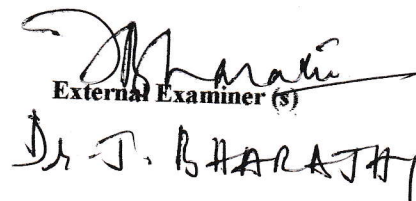 External Examiner (s)
Dr. J. BHARATHY